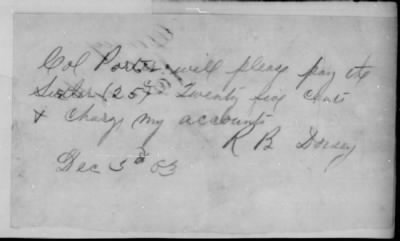 Col Porter will please pay the
Sutler (25/ Twenty five cents
& charge my account
R B Dorsey
Dec 3d 63